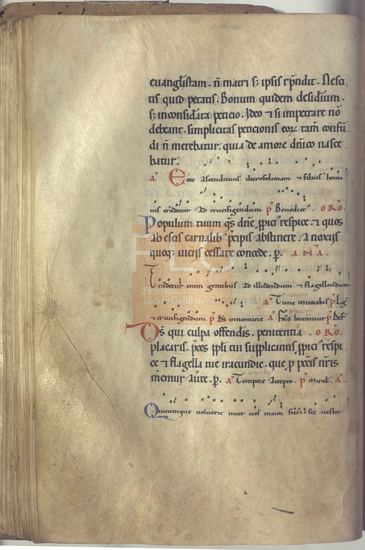 euanglistam. n̄ matri s; ipsis r̄pndit. Nesci
tis quid petatis. Bonum quidem desideriũ.
s; inconsiderata peticio. Ideo ⁊ si impetrare nō
debeant. simplicitas peticionis eorũ tam̄ confun
di n̄ merebatur. quia de amore dn̄ico nasce
batur.
a Ecce ascendimus iherosolimam ⁊ filius homi
nis tradetur ad crucifigendum p̄ Benedic̄. ORO.
Populum tuum q̄s dn̄e ꝓpici respice. ⁊ quos
ab escis carnalib; precipis abstinere. a noxiis
quoq; uiciis cessare concede. p. ANA.
Tradetur enim gentibus ad illudendum ⁊ flagellandum
⁊ crucifigendum
Deus qui culpa offendis. penitentia ORO.
placaris. p̄ces ppl̄i tui supplicantis ꝓpici respi
ce ⁊ flagella tue iracundie. que p̄ pec̄is nr̄is
meremur auerte. p. a Tempore
Quicumque uoluerit inter uos maior fieri sit uester